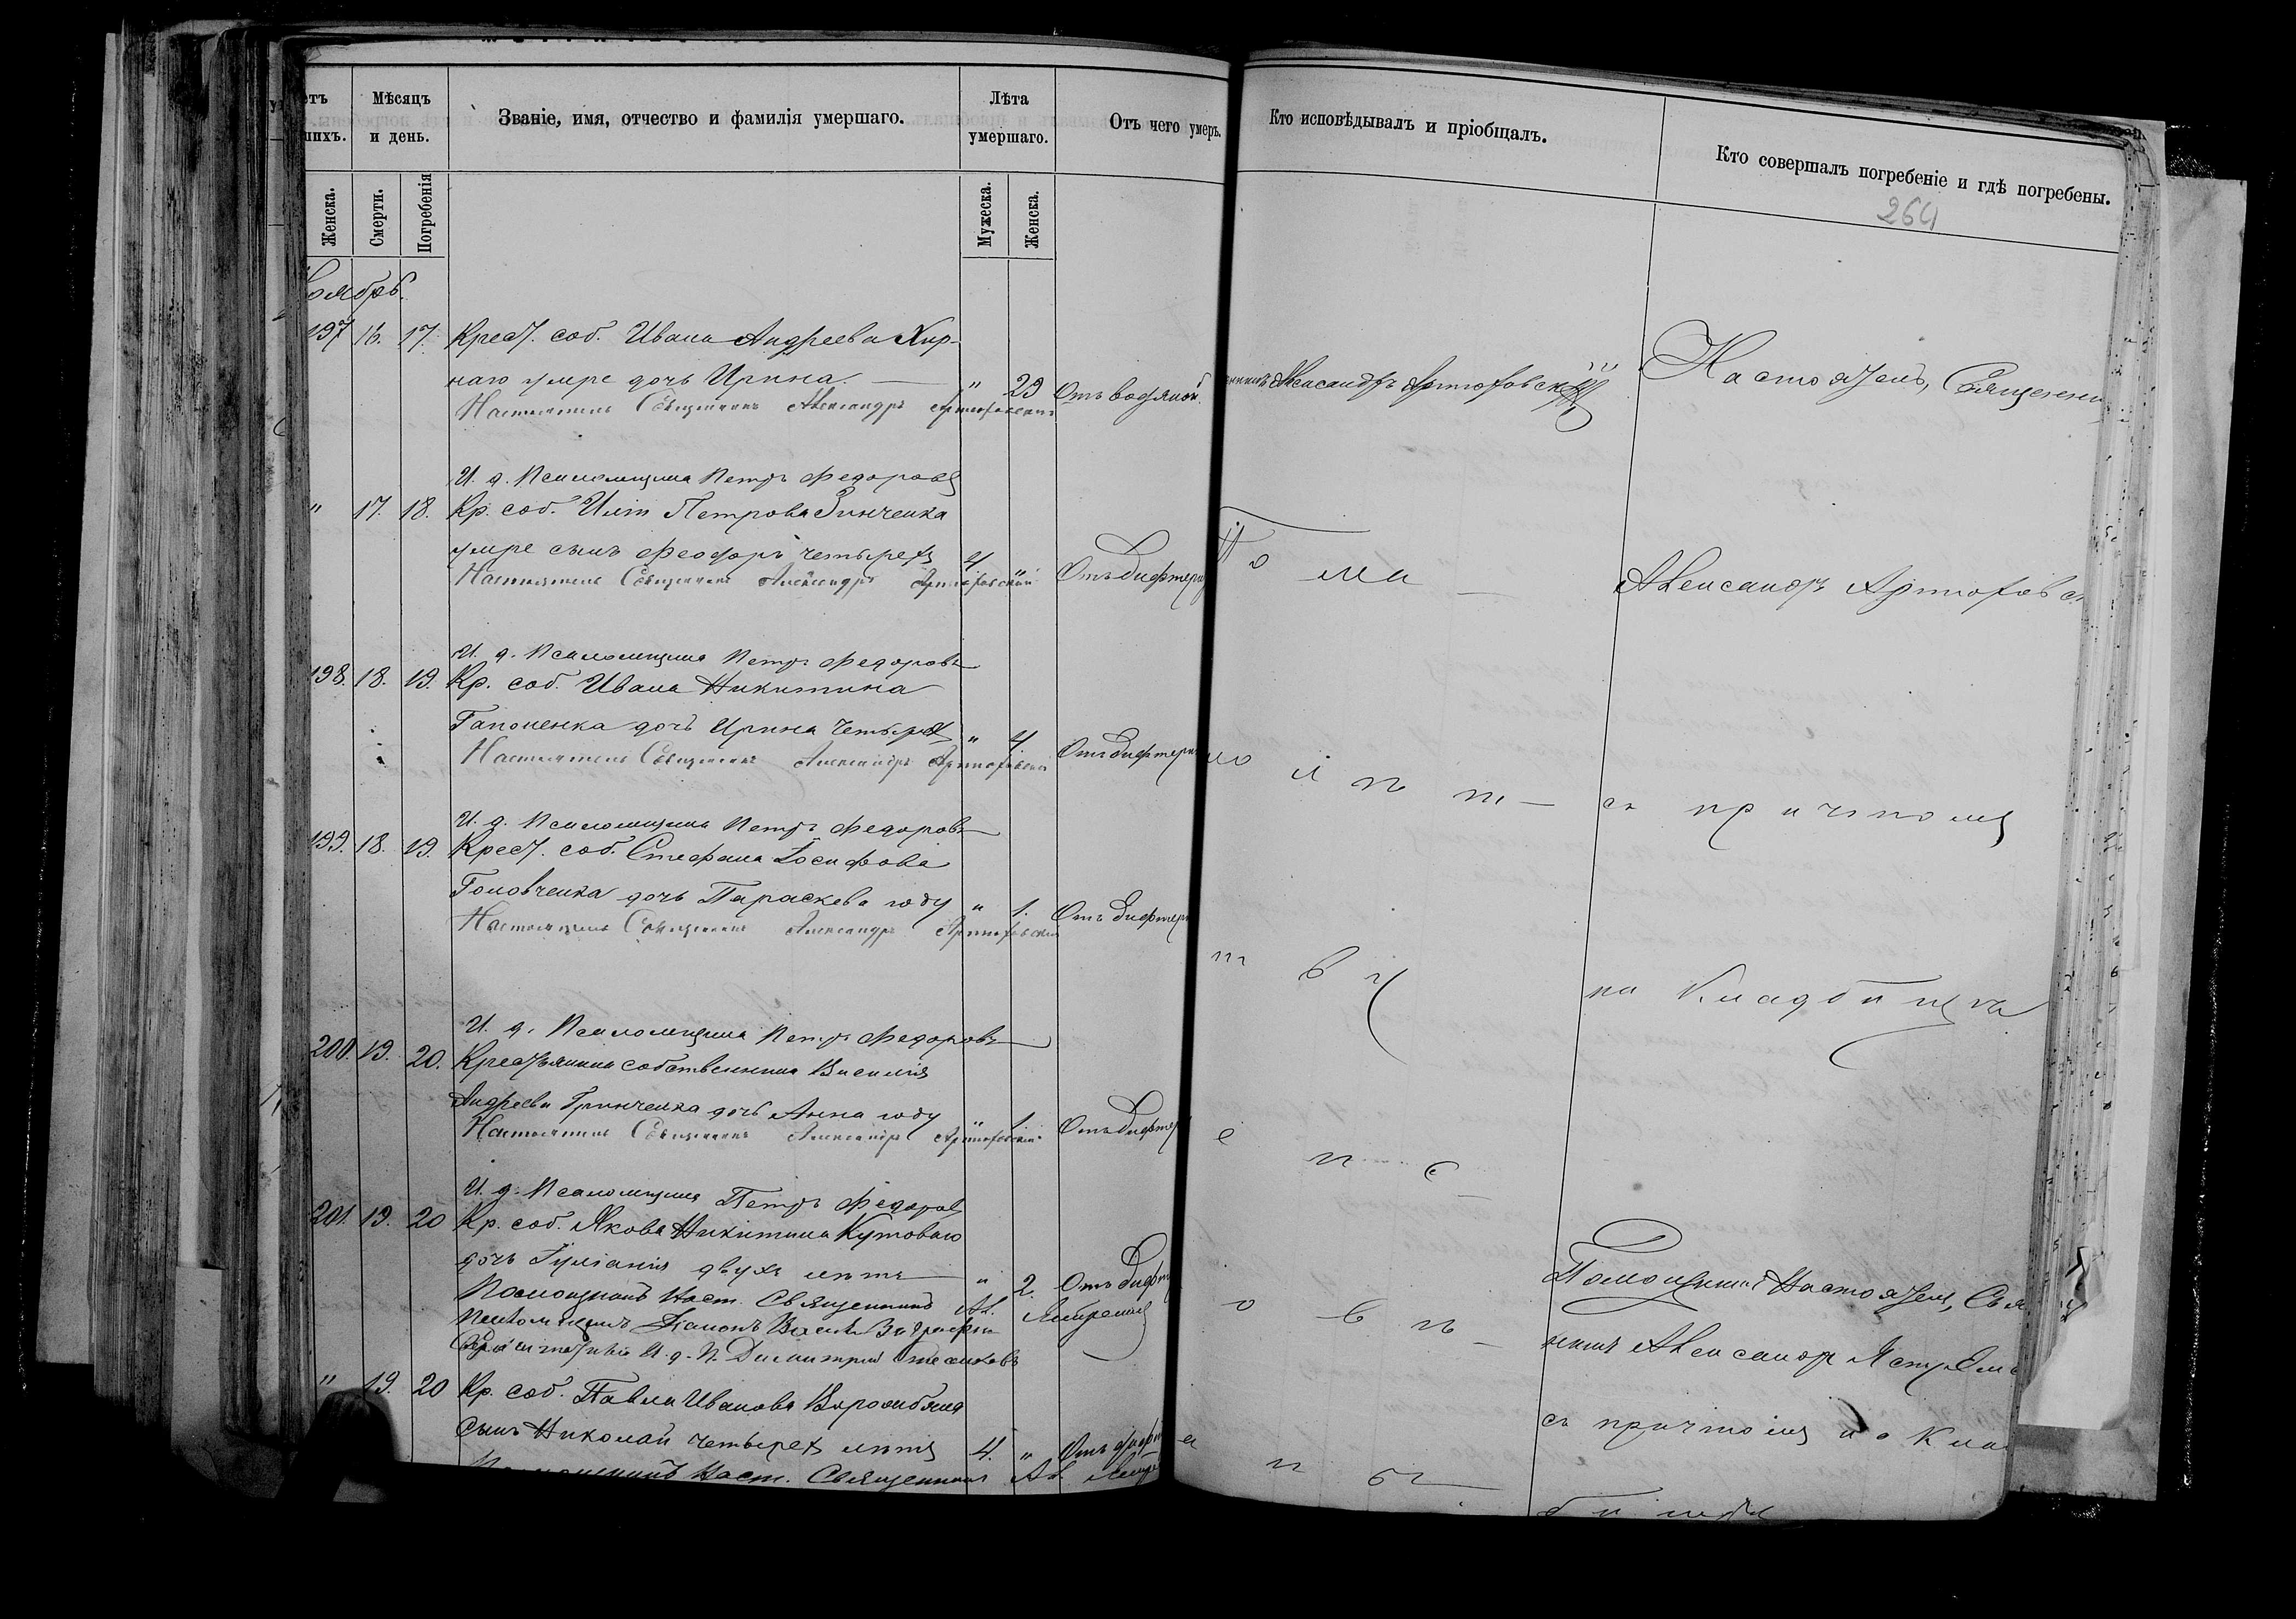 етъ
шихъ.
Мѣсяцъ
и день.
Званіе, имя, отчество и фамилія умершаго.
Лѣта
умершаго.
Отъ чего умеръ.
Женска.
Смерти.
Погребенія
Мужеска.
Женска.
Кто исповѣдывалъ и пріобщалъ.
Кто совершалъ погребеніе и гдѣ погребены.
264
оябрь.
197 16. 17. Крест. соб. Ивана Андреева Хир-
наго умре дочь Ирина. — " 29 Отъ водяной
Настоятель Священникъ Александръ Артюховскій
И. д. Псаломщика Петръ Федоровъ
" 17. 18. Кр. соб. Иліи Петрова Зинченка
умре сынъ Феодоръ четырехъ 4 " Отъ дифтери
Настоятель Священникъ Александръ Артюховскій
И. д. Псаломщика Петръ Федоровъ
198. 18. 19. Кр. соб. Ивана Никитина
Гапоненка дочь Ирина четырехъ " 4. Отъ дифтери
Настоятель Священникъ Александръ Артюховскій
И. д. Псаломщика Петръ Федоровъ
199. 18. 19. Крест. соб. Стефана Іосифова
Головченка дочь Параскева году " 1. Отъ дифтери
Настоятель Священникъ Александръ Артюховскій
И. д. Псаломщика Петръ Федоровъ
200. 19. 20. Крестьянина собственника Василія
Андреева Гринченка дочь Анна году " 1. Отъ дифтер
Настоятель Священникъ Александръ Артюховскій
И. д. Псаломщика Петръ Федоровъ
201. 19. 20 Кр. соб. Якова Никитина Кутоваго
дочь Іуліанія двухъ лѣтъ — " 2. Отъ дифт
Помощникъ Наст. Священникъ Ал.
И. д. П. Димитрій
" 19. 20 Кр. соб. Павла Иванова Воробьяна
сынъ Николай четырехъ лѣтъ 4. " Отъ дифт
Наст. Священникъ Ал.
никъ Александръ Артюховскій
По ма —
но л п т —
т в у
е п с —
о в ъ —
Настоятель, Священни
Александръ Артюховск
съ причтомъ
на Кладбищѣ
Помощникъ Настоятеля, Свя
никъ Александръ
съ причтомъ на Клад